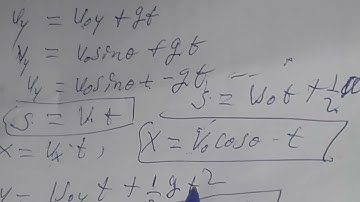 Vy = V₀y + gt
Vy = V₀sinθ + gt
Vy = V₀sinθt - gt,
S = V₀t + 1/2 a
S = V₁t
X = Vx·t,
X = V₀cosθ - t
y = V₀yt + 1/2 gt²